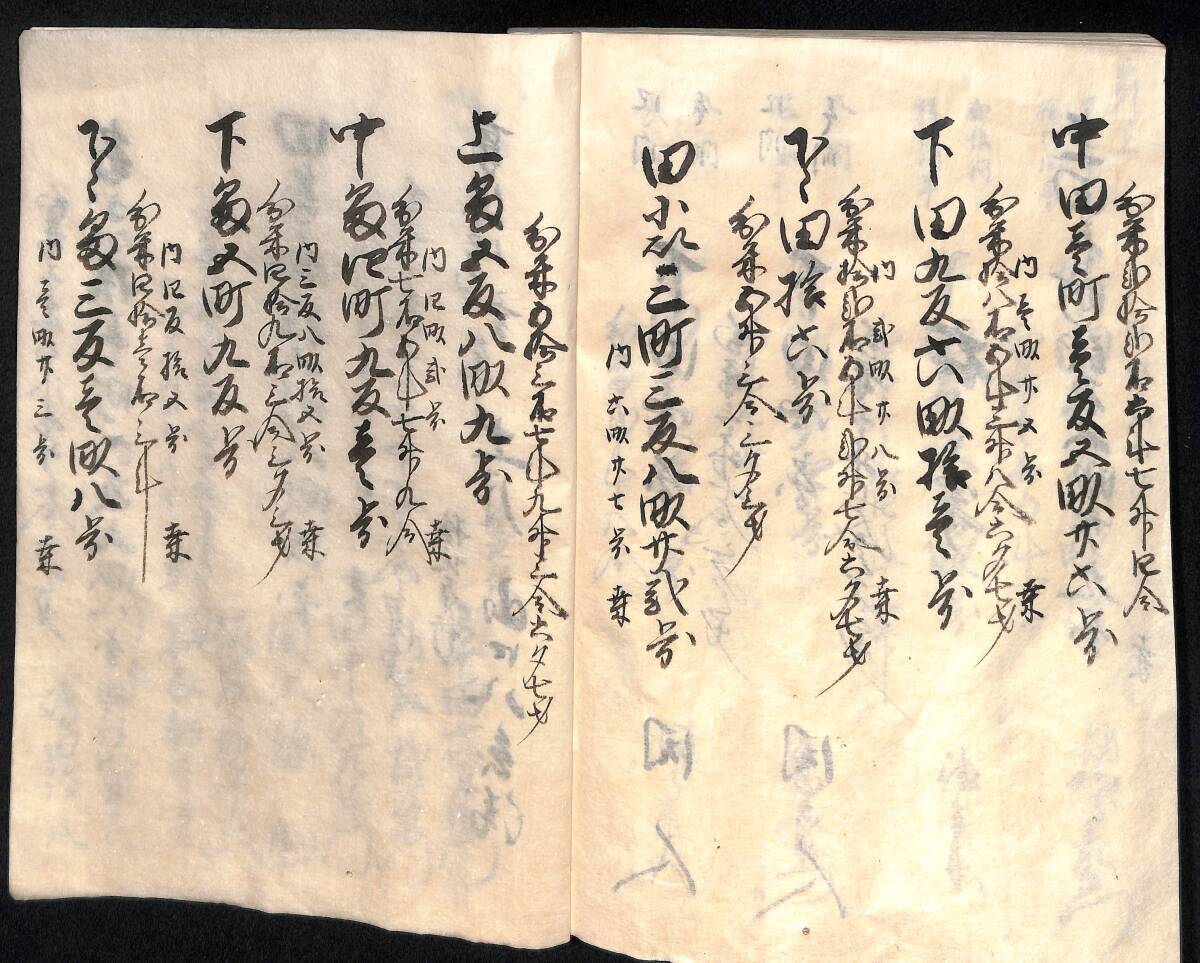 分米弐拾弐石六斗七升四合
中田壱町壱反五畝廿六歩
内壱畝廿五歩 荒
分米拾八石五斗三升八合六夕七才
下田九反六畝拾壱歩
内弐畝廿八歩 荒
分米拾弐石五斗弐升七合六夕七才
下々田拾六歩
分米五升三合三夕三才
田小以三町三反八畝廿弐歩
内六畝廿七歩 荒
分米五拾三石七斗九升三合六夕七才
上畠五反八畝九歩
内四畝弐歩 荒
分米七石五斗七升九合
中畠四町九反壱歩
内三反八畝拾五歩 荒
分米四拾九石三合三夕三才
下畠五町九反歩
内四反拾五歩 荒
分米四拾壱石三斗
下々畠三反壱畝八歩
内壱畝廿三歩 荒